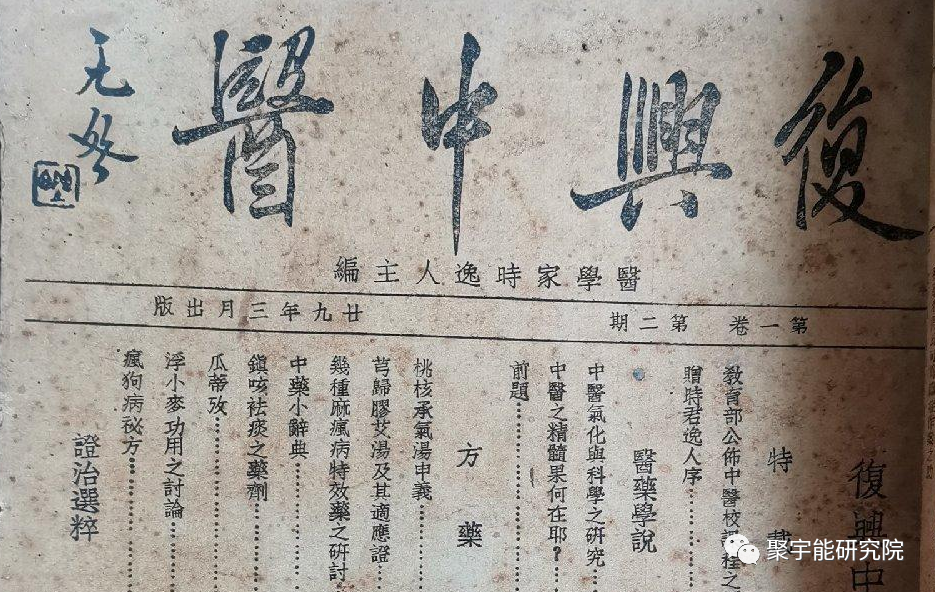 復興中醫
醫學家時逸人主編
第一卷 第二期
廿九年三月出版
復興中
特載
教育部公佈中醫校課程之
贈時君逸人序……
醫藥學說
中醫氣化與科學之研究……
中醫之精髓果何在耶?……
前題……
方藥
桃核承氣湯申義……
芎歸膠艾湯及其適應證……
幾種麻瘋病特效藥之研討
中藥小辭典……
鎮咳祛痰之藥劑……
瓜蒂攷……
浮小麥功用之討論……
瘋狗病祕方……
證治選粹
聚宇能研究院